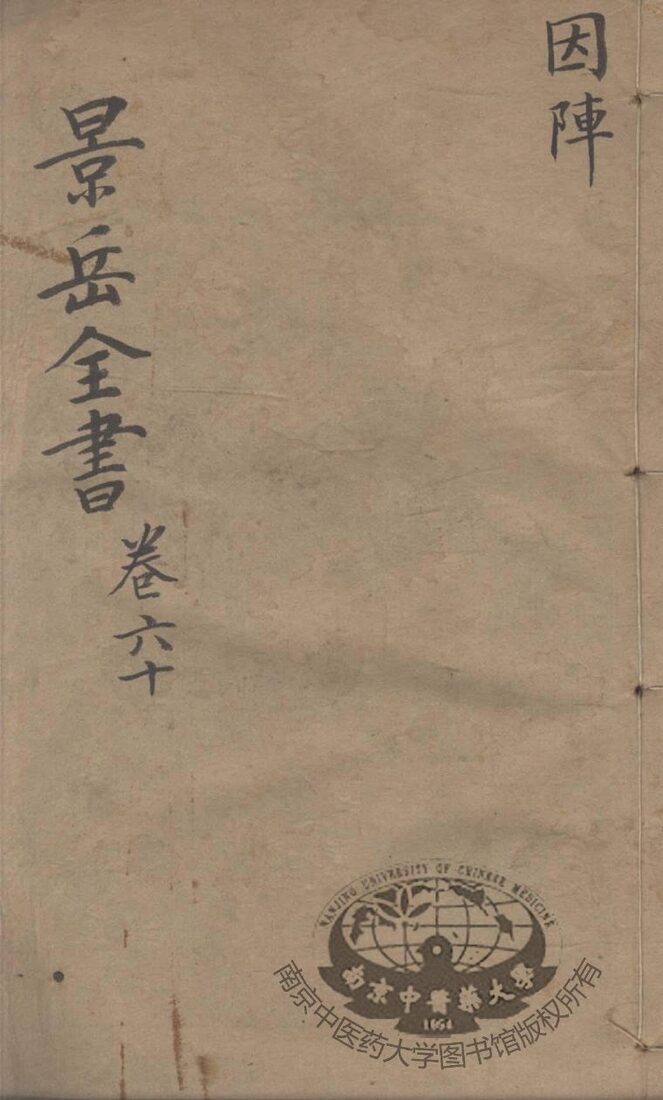 因陣
景岳全書
卷六十
NANJING UNIVERSITY OF CHINESE MEDICINE
南京中醫藥大學
1954
南京中医药大学图书馆版权所有